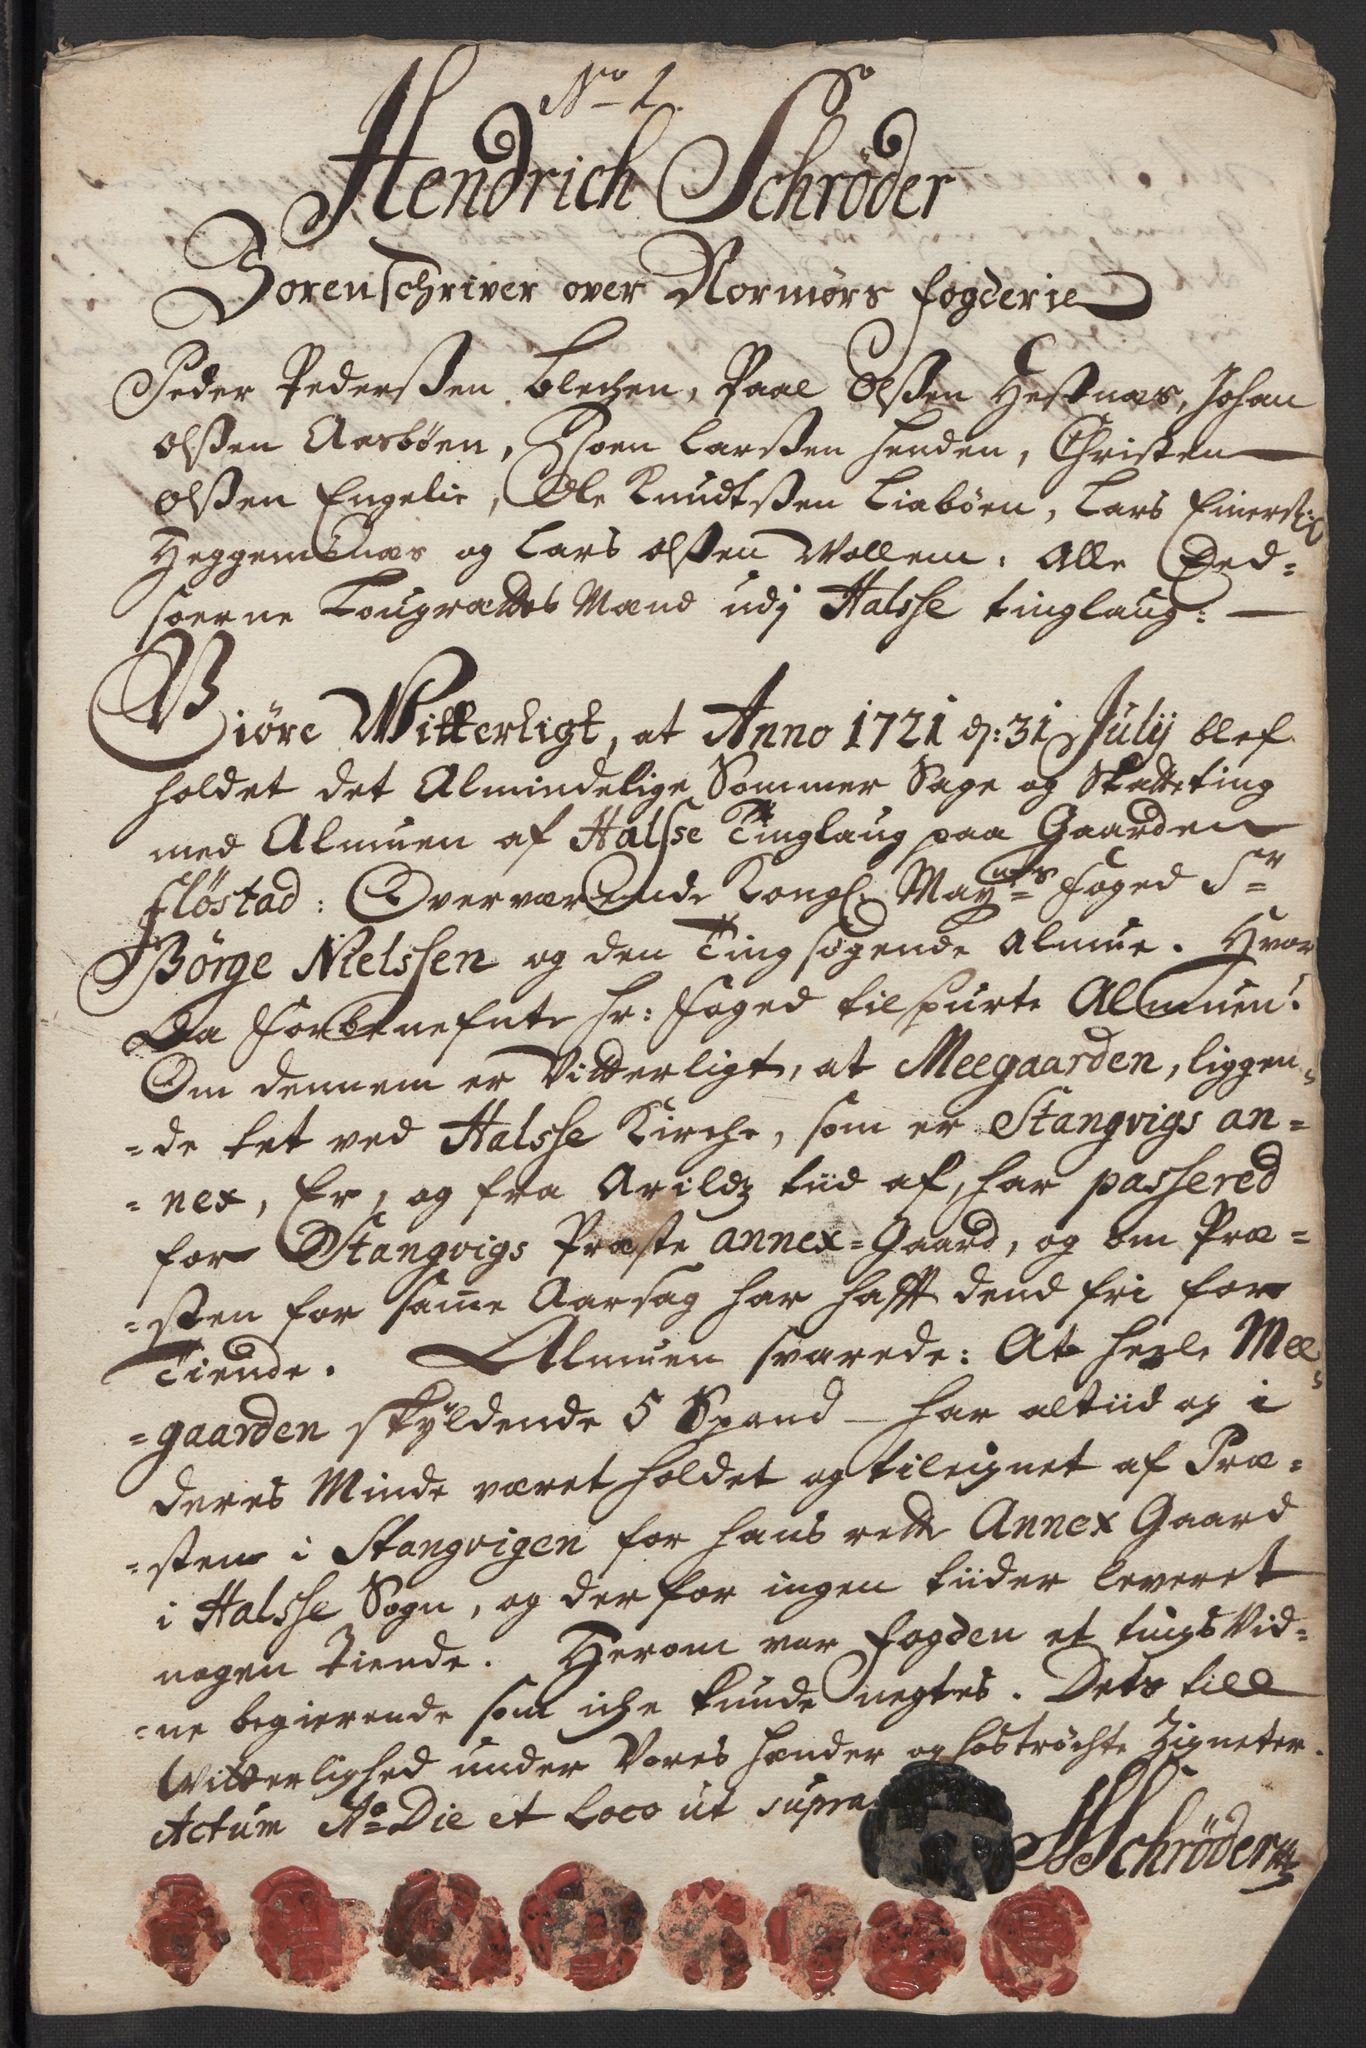 No 1.
Hendrich Schrøder
Sorenschriver over Normørs fogderie
Peder Pederßen Blechen, Paal Olßen Heßnæs, Johan
Olßen Aasbøen, Joen Larßen Henden, Christen
Olßen Engelie, Ole Knudtßen Liabøen, Lars Einerß:
Heggemsnæs og Lars Olßen Vollem. Alle Eed-
soerne Laugrettes Mænd udj Halsse tinglaug:
Giøre Witterligt, at Anno 1721 d: 31 Julij blef
holdet det Almindelige Sommer Sage og Skatteting
med Almuen af Halsse Tinglaug paa Gaarden
Fløstad: Overværende Kongl. Mayts Foged Sr
Børge Nielssen og den Ting søgende Almue. Hvor
Da Forbenefnte Hr: Foged tilspurte Almuen:
Om dennem er Vitterligt, at Meegaarden, liggen-
-de tet ved Halsse Kirche, som er Stangvigs an-
-nex, Er, og fra Arildz tiid af, har passered
for Stangvigs Præste annex-Gaard, og om Præ-
-sten for samme Aarsag har hafft dend fri for
Tiende. Almuen svarede: At heele Mee-
-gaarden skyldende 5 Spand - har altiid og i
deres Minde været holdet og tileignet af Præ-
-sten i Stangvigen for hans rette Annex Gaard
i Halsse Sogn, og der for ingen tiider leveret
nogen Tiende. Herom var fogden et tings Vid-
-ne begierende som iche kunde negtes. Dets till
Vitterlighed under Vores hænder og hostrøchte Zigneter.
Actum Ao Die et Loco ut supra
HSchrøder